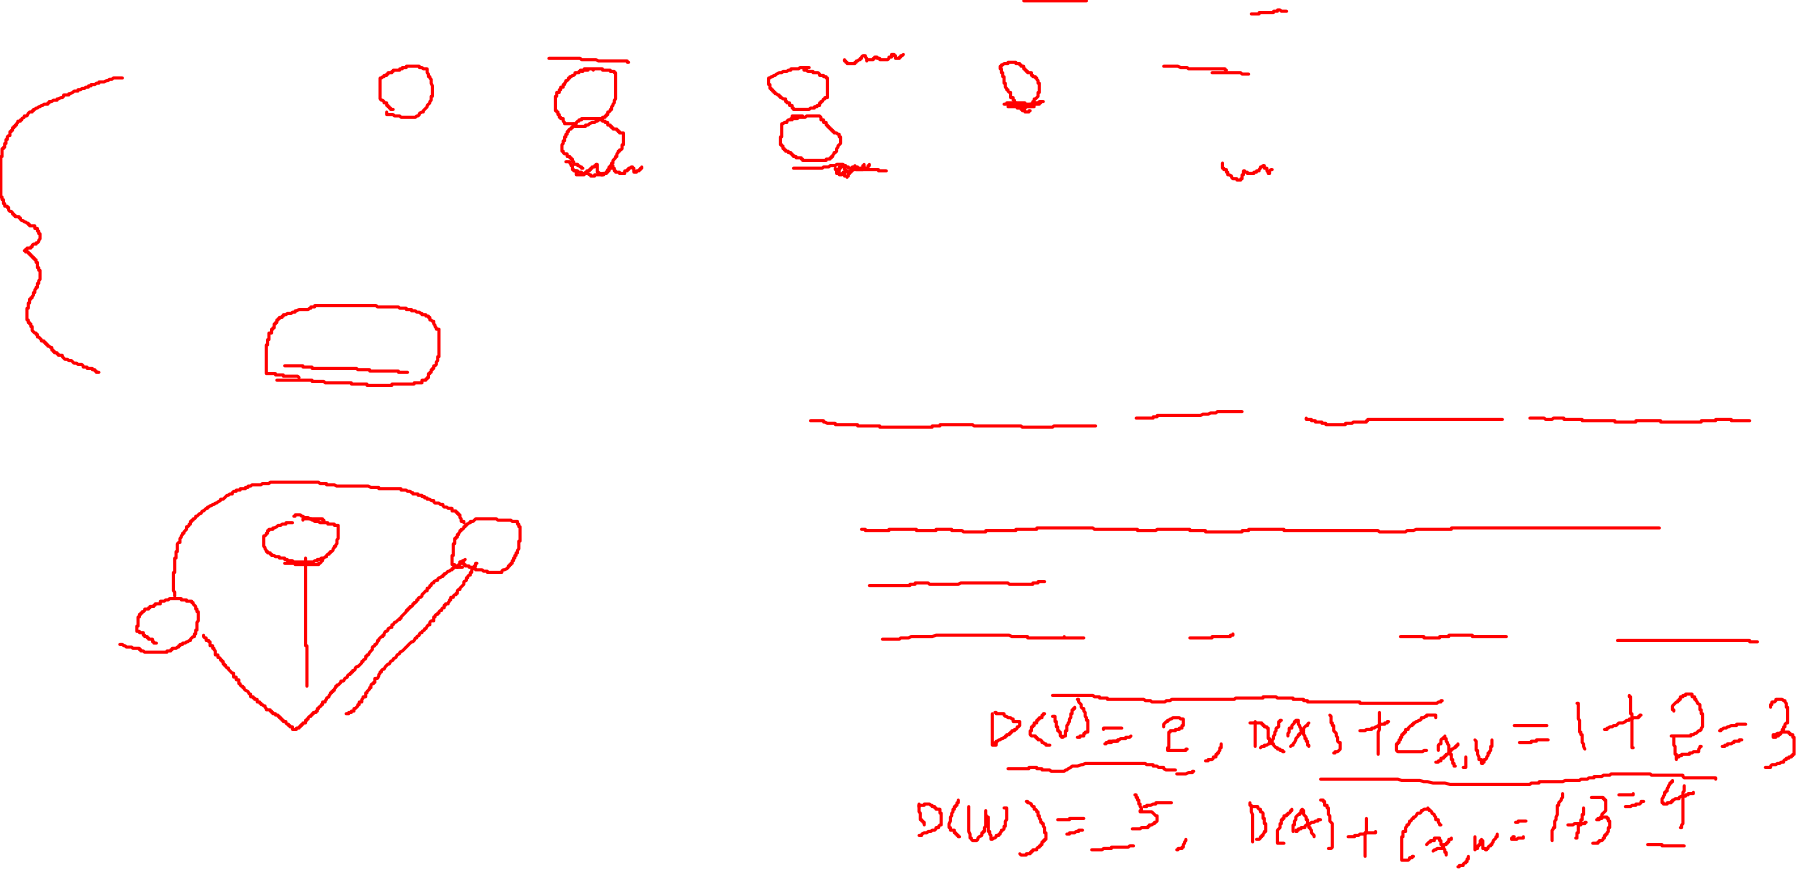 D(V) = 2, D(X) + Cx,v = 1 + 2 = 3
D(W) = 5, D(X) + Cx,w = 1+3 = 4